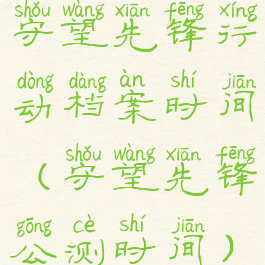 shǒu wàng xiān fēng xíng
守望先锋行
dòng dàng àn shí jiān
动档案时间
shǒu wàng xiān fēng
（守望先锋
gōng cè shí jiān
公测时间）